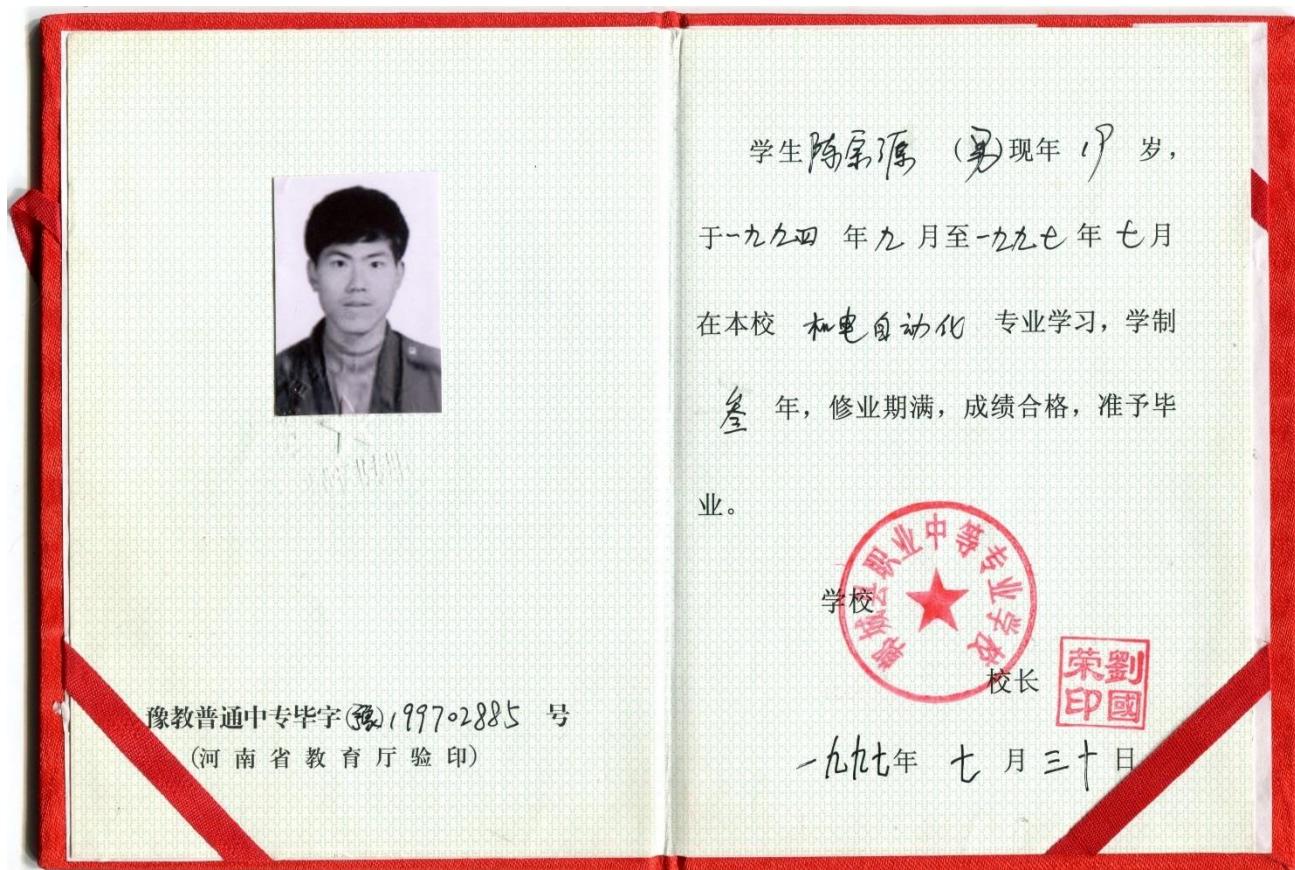 豫教普通中专毕字(豫)199702885 号
(河南省教育厅验印)
学生陈宗源 (男)现年 19 岁,
于一九九四 年九月至一九九七年 七月
在本校 机电自动化 专业学习,学制
叁 年,修业期满,成绩合格,准予毕
业。
郸城县职业中等专业学校
学校
校长
劉國荣印
一九九七年 七 月 三十 日